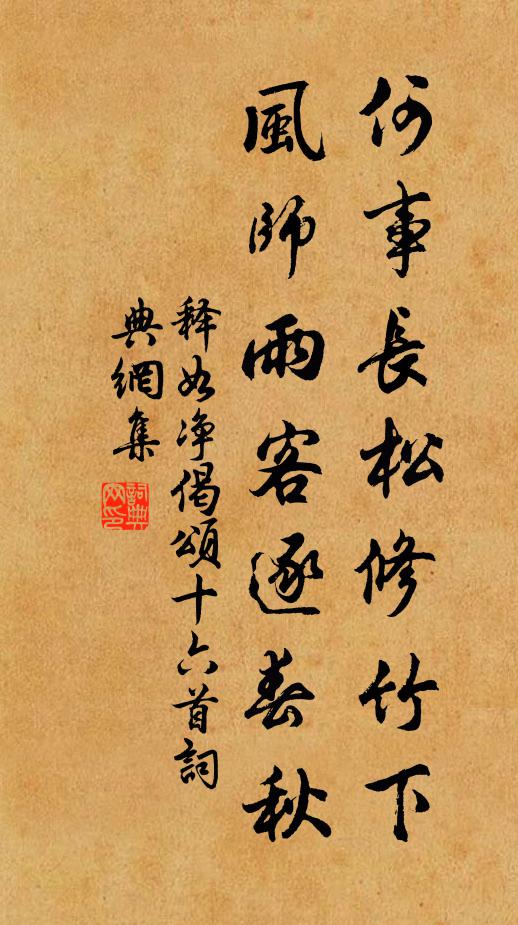 何事長松修竹下
風師雨客逐春秋
释如净偈頌十六首詞
典網集
詞典
网印